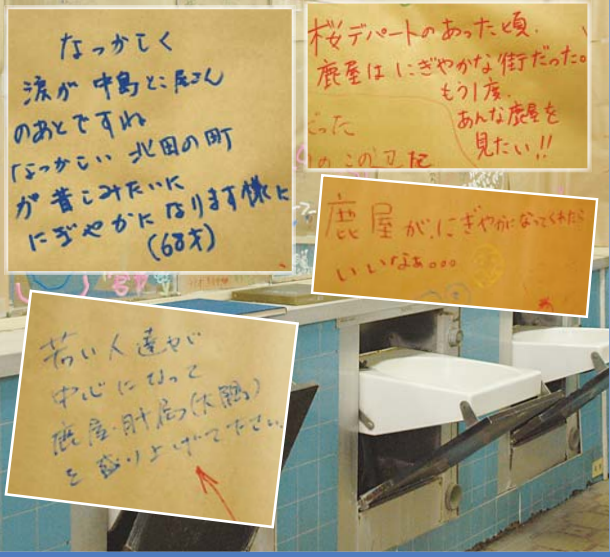 なつかしく
涙が 中島とこ屋さん
のあとですね
なつかしい 北田の町
が昔しみたいに
にぎやかになります様に
(68才)
桜デパートのあった頃、
鹿屋はにぎやかな街だった。
もう1度、
あんな鹿屋を
見たい!!
だった
鹿屋が、にぎやかになってくれたら
いいなぁ。。。
若い人達が
中心になって
鹿屋・肝属(大隅)
を盛り上げて下さい